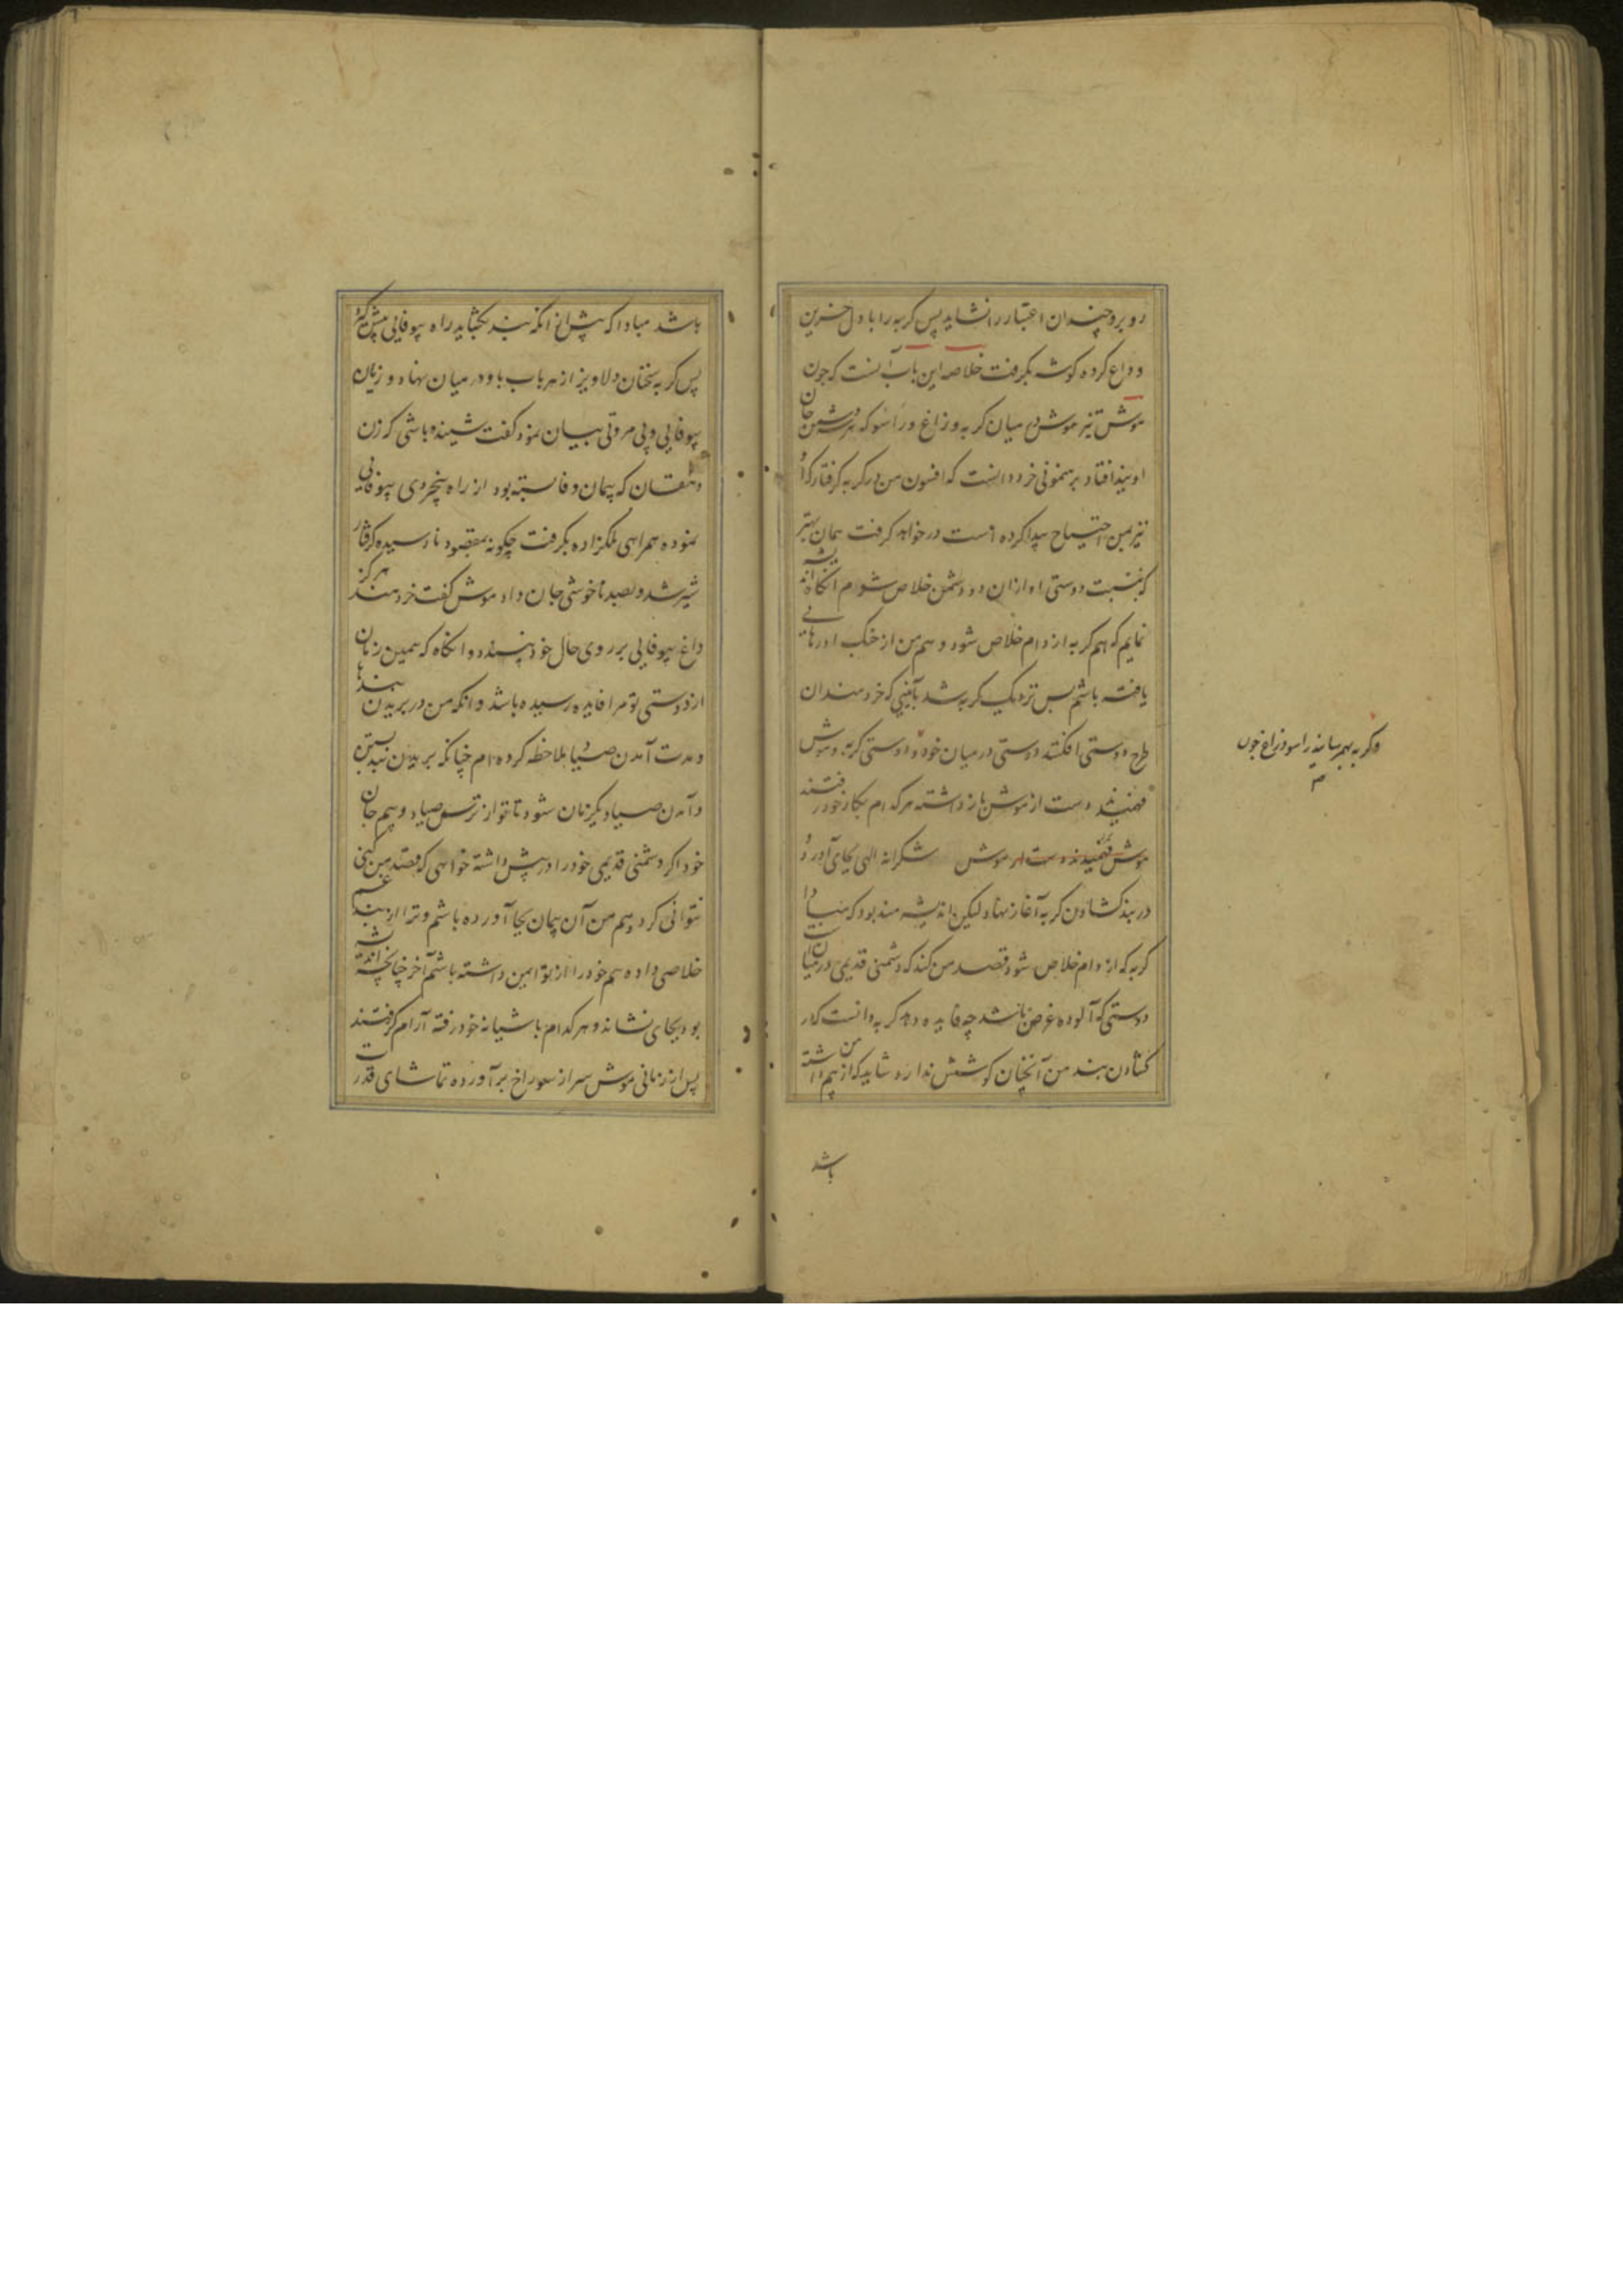 روبرو چندان اعتبار را نشاید پس کربه را با دل حزین
وداع کرده کوشه بکرفت خلاصه این باب آنست که چون
موش تیز هوش در میان کربه و زاغ و راسو که هر سه دشمن جان
اویند افتاد برهنمونی خرد دانست که افسون من در کربه کرفتار که او
نیز بمن احتیاج پیدا کرده است در خواهد کرفت همان بهتر
که بنسبت دوستی او ازان دو دشمن خلاص شوم انکاه اندیشه
نمایم که هم کربه از دام خلاص شود و هم من از چنک او رهایی
یافته باشم پس نزدیک کربه شد بآئینی که خردمندان
طرح دوستی افکنند دوستی در میان خود و دوستی کربه و موش
فهمیدند دست از موش باز داشته هر کدام بکار خود رفتند
موش فهمیدند دست از موش شکرانه الهی بجای آورد و
در بند کشادن کربه آغاز نهاد لیکن اندیشه مند بود که مبادا
کربه که از دام خلاص شود قصد من کند که دشمنی قدیمی در میانست
دوستی که آلوده غرض باشد چه فایده دهد کربه دانست که در
کشادن بند من آنچنان کوشش ندارد شاید که از من بیم داشته
باشد
وکربه بهم رسانید راسو و زاغ چون
باشد مبادا که پیش از انکه بند بکشاید راه بیوفایی پیش کیرد
پس کربه سخنان دلاویز از هر باب باو در میان نهاد و زیان
بیوفایی و بی مروتی بیان نمود کفت شنیده باشی که زن
دهقان که پیمان وفا بسته بود از راه بیخردی بیوفایی
نموده همراهی ملکزاده بکرفت چکونه بمقصود نارسیده کرفتار
شیر شد و بصد ناخوشی جان داد موش کفت خردمند هرکز
داغ بیوفایی بر روی حال خود نپسندد و انکاه که همین زمان
از دوستی تو مرا فایده رسیده باشد و انکه من در بریدن بندها
و مدت آمدن صیاد ملاحظه کرده ام چنانکه بریدن بند پسین
و آمدن صیاد یکزمان شود تا تو از ترس صیاد و بیم جان
خود اکر دشمنی قدیمی خود را در پیش داشته خواهی که قصد من کنی
نتوانی کرد و هم من آن پیمان بجا آورده باشم و ترا از بند غم
خلاصی داده هم خود را از تو ایمن داشته باشم آخر چنانچه اندیشه
بود بجای نشاند و هر کدام باشیانه خود رفته آرام کرفتند
پس از زمانی موش سر از سوراخ برآورده تماشای قدرت